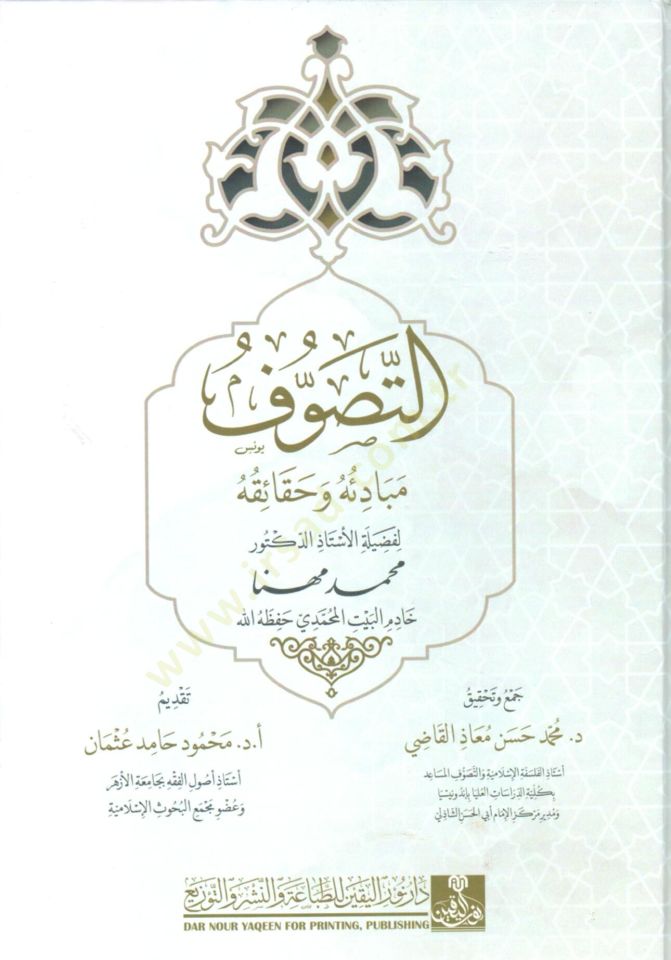 التَّصَوُّفُ
يونس
مَبَادِئُهُ وَحَقَائِقُهُ
لِفَضِيلَةِ الأُسْتَاذِ الدُّكْتُور
محمد مهنا
خَادِمِ البَيْتِ المُحَمَّدِيّ حَفِظَهُ الله
جَمْعُ وَتَحْقِيقُ
د. مُحَمَّد حَسَن مُعَاذ القَاضِي
أستاذ الفلسفة الإسلامية والتصوف المساعد
بكلية الدراسات العليا بإندونيسيا
ومدير مركز الإمام أبي الحسن الشاذلي
تَقْدِيمُ
أ.د. مَحْمُود حَامِد عُثْمَان
أستاذ أصول الفقه بجامعة الأزهر
وعضو مجمع البحوث الإسلامية
دار نور اليقين للطباعة والنشر والتوزيع
DAR NOUR YAQEEN FOR PRINTING, PUBLISHING
نور اليقين
www.irsad.com.tr